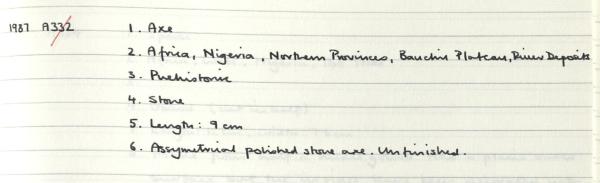 1987 A332 1. Axe
2. Africa, Nigeria, Northern Provinces, Bauchi Plateau, River Deposits
3. Prehistoric
4. Stone
5. Length: 9 cm
6. Assymetrical polished stone axe. Unfinished.